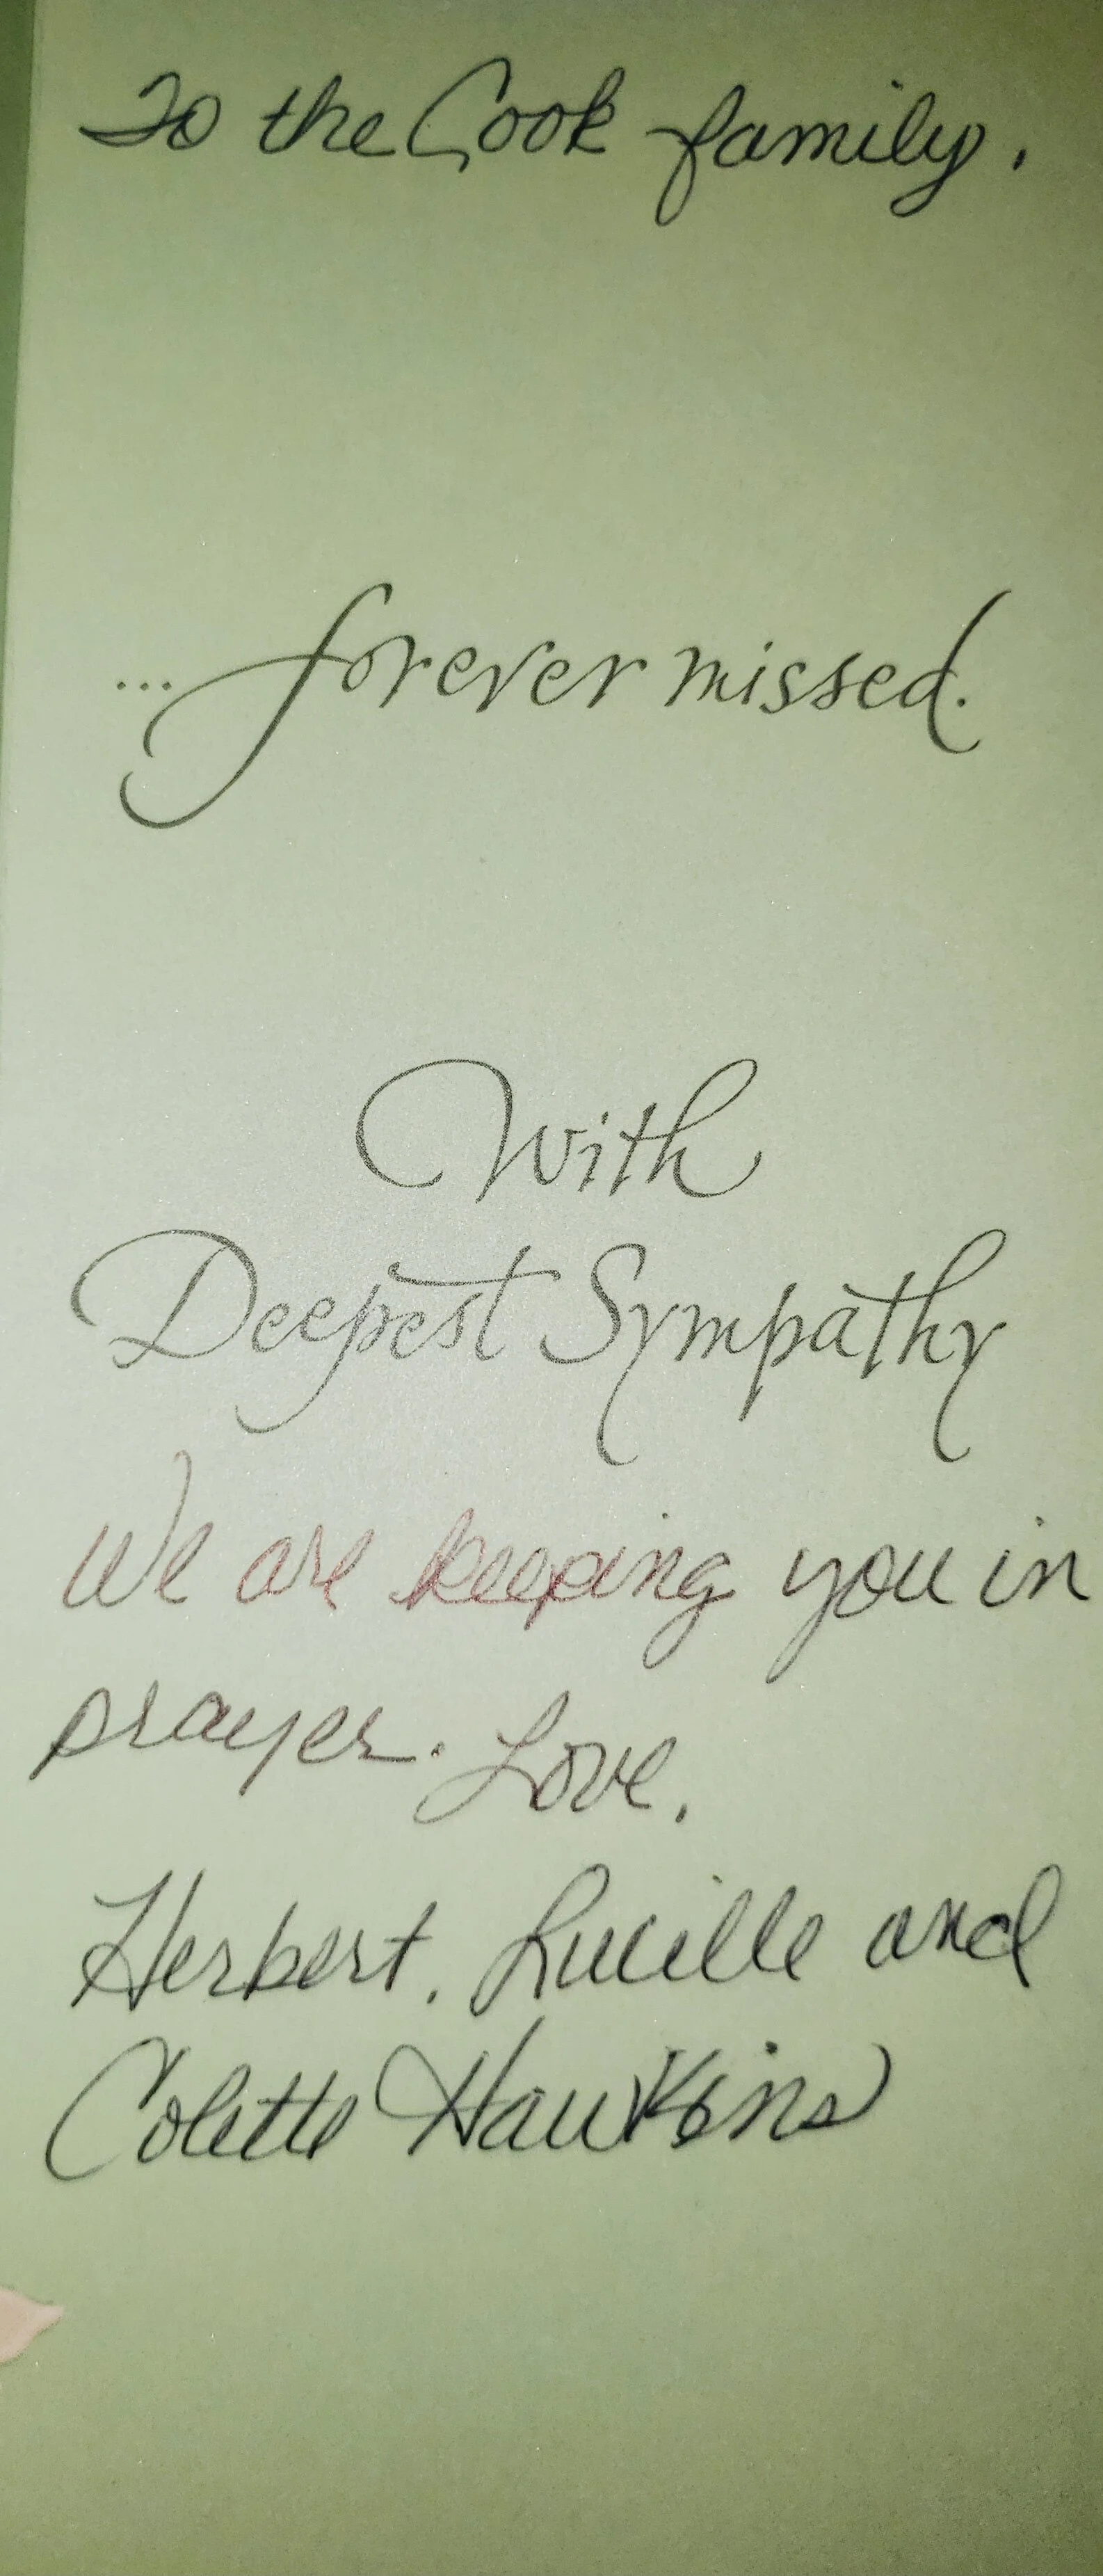 To the Cook family.
...forever missed.
With
Deepest Sympathy
We are keeping you in
prayer. Love,
Herbert, Lucille and
Colette Hawkins